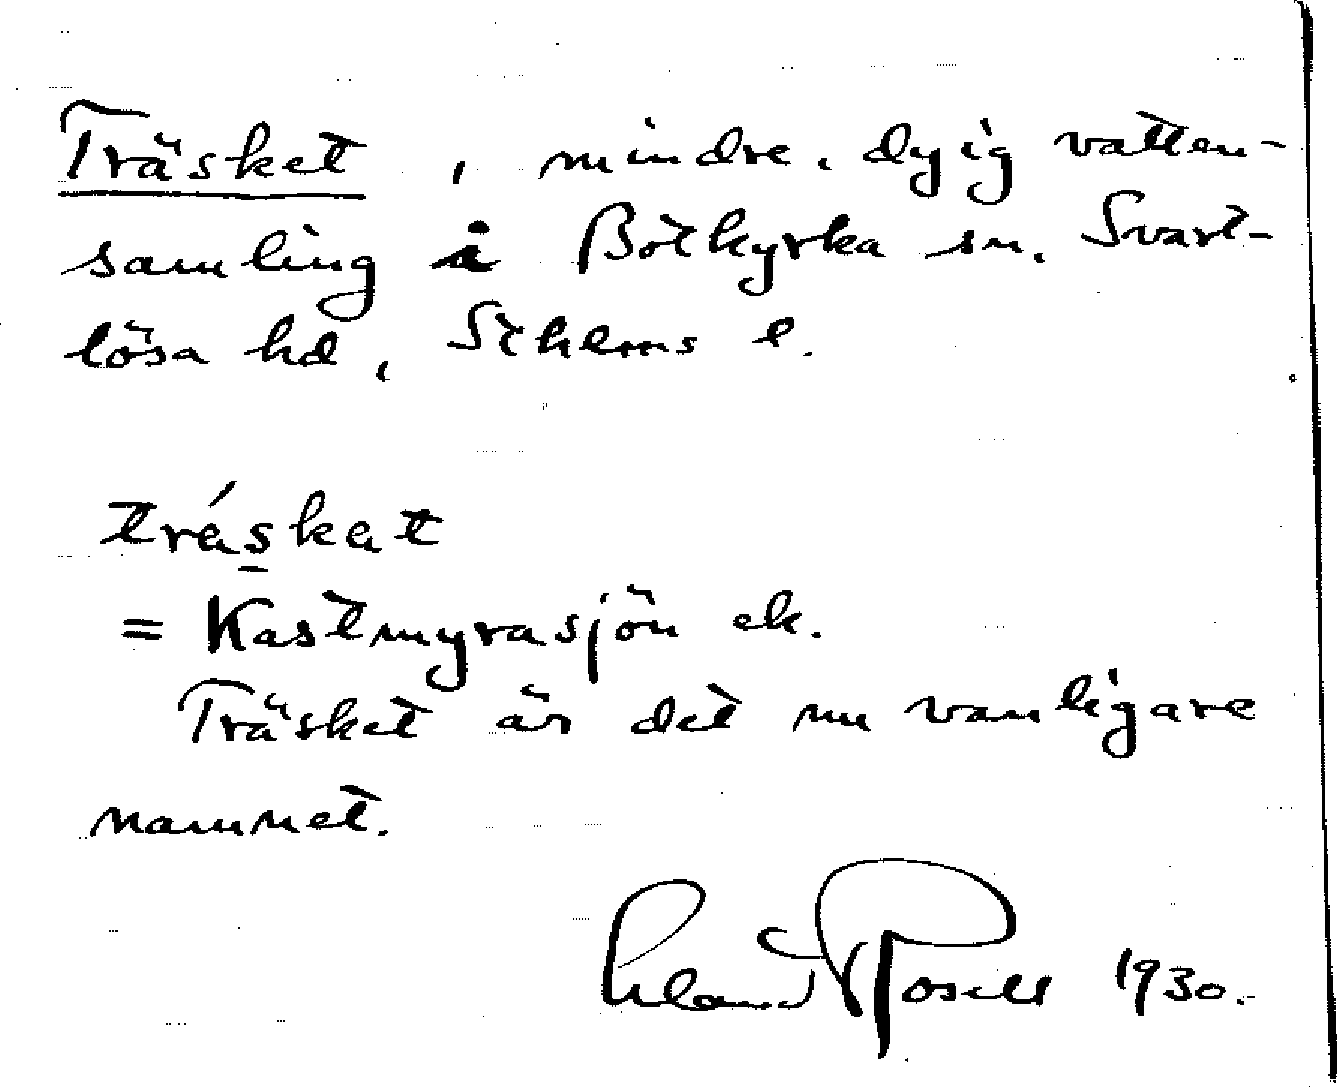 Träsket, mindre, dyig vatten-
samling i Botkyrka sn. Svart-
lösa hd, Sthlms l.
tráskat
= Kastmyrasjön ek.
Träsket är det nu vanligare
namnet.
Rosell 1930.